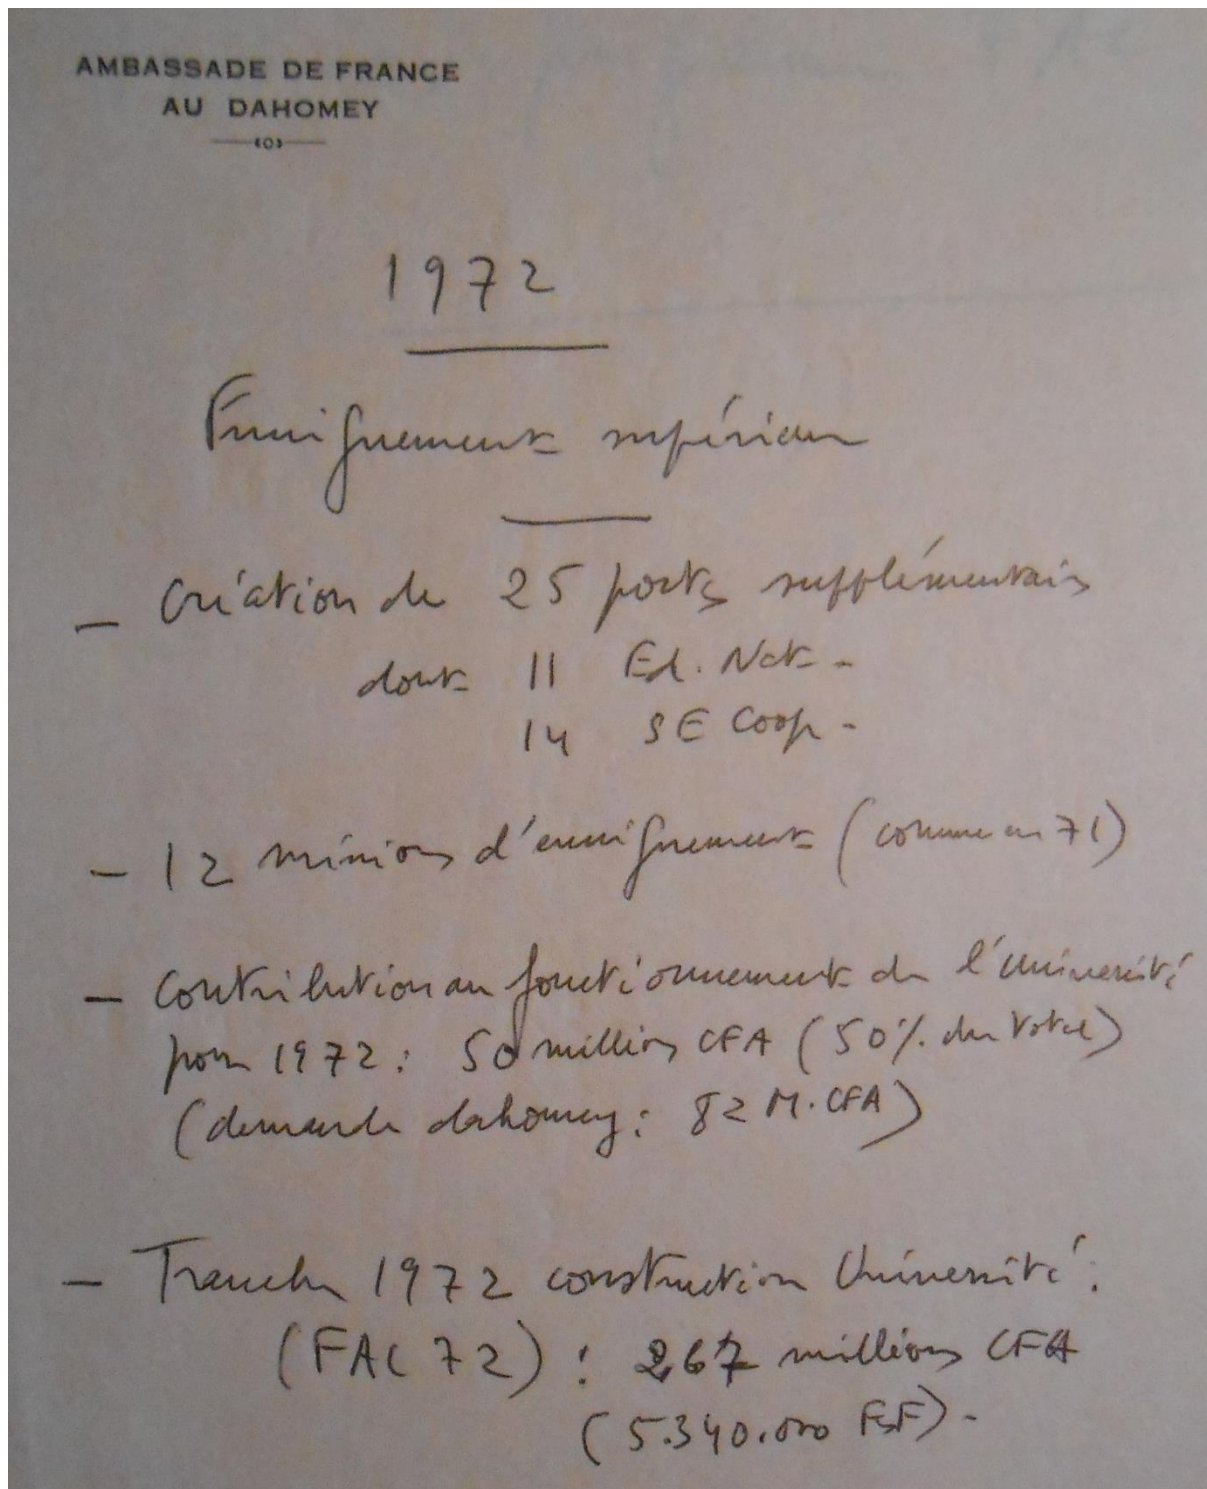 AMBASSADE DE FRANCE
AU DAHOMEY
1972
Enseignement supérieur
- Création de 25 postes supplémentaires
dont 11 Ed. Nat -
14 SE Coop -
- 12 missions d'enseignement (comme en 71)
- Contribution au fonctionnement de l'Université
pour 1972 : 50 millions CFA (50% du total)
(demande dahomey : 82 M. CFA)
- Tranche 1972 construction Université :
(FAC 72) : 267 millions CFA
(5.340.000 FF) -